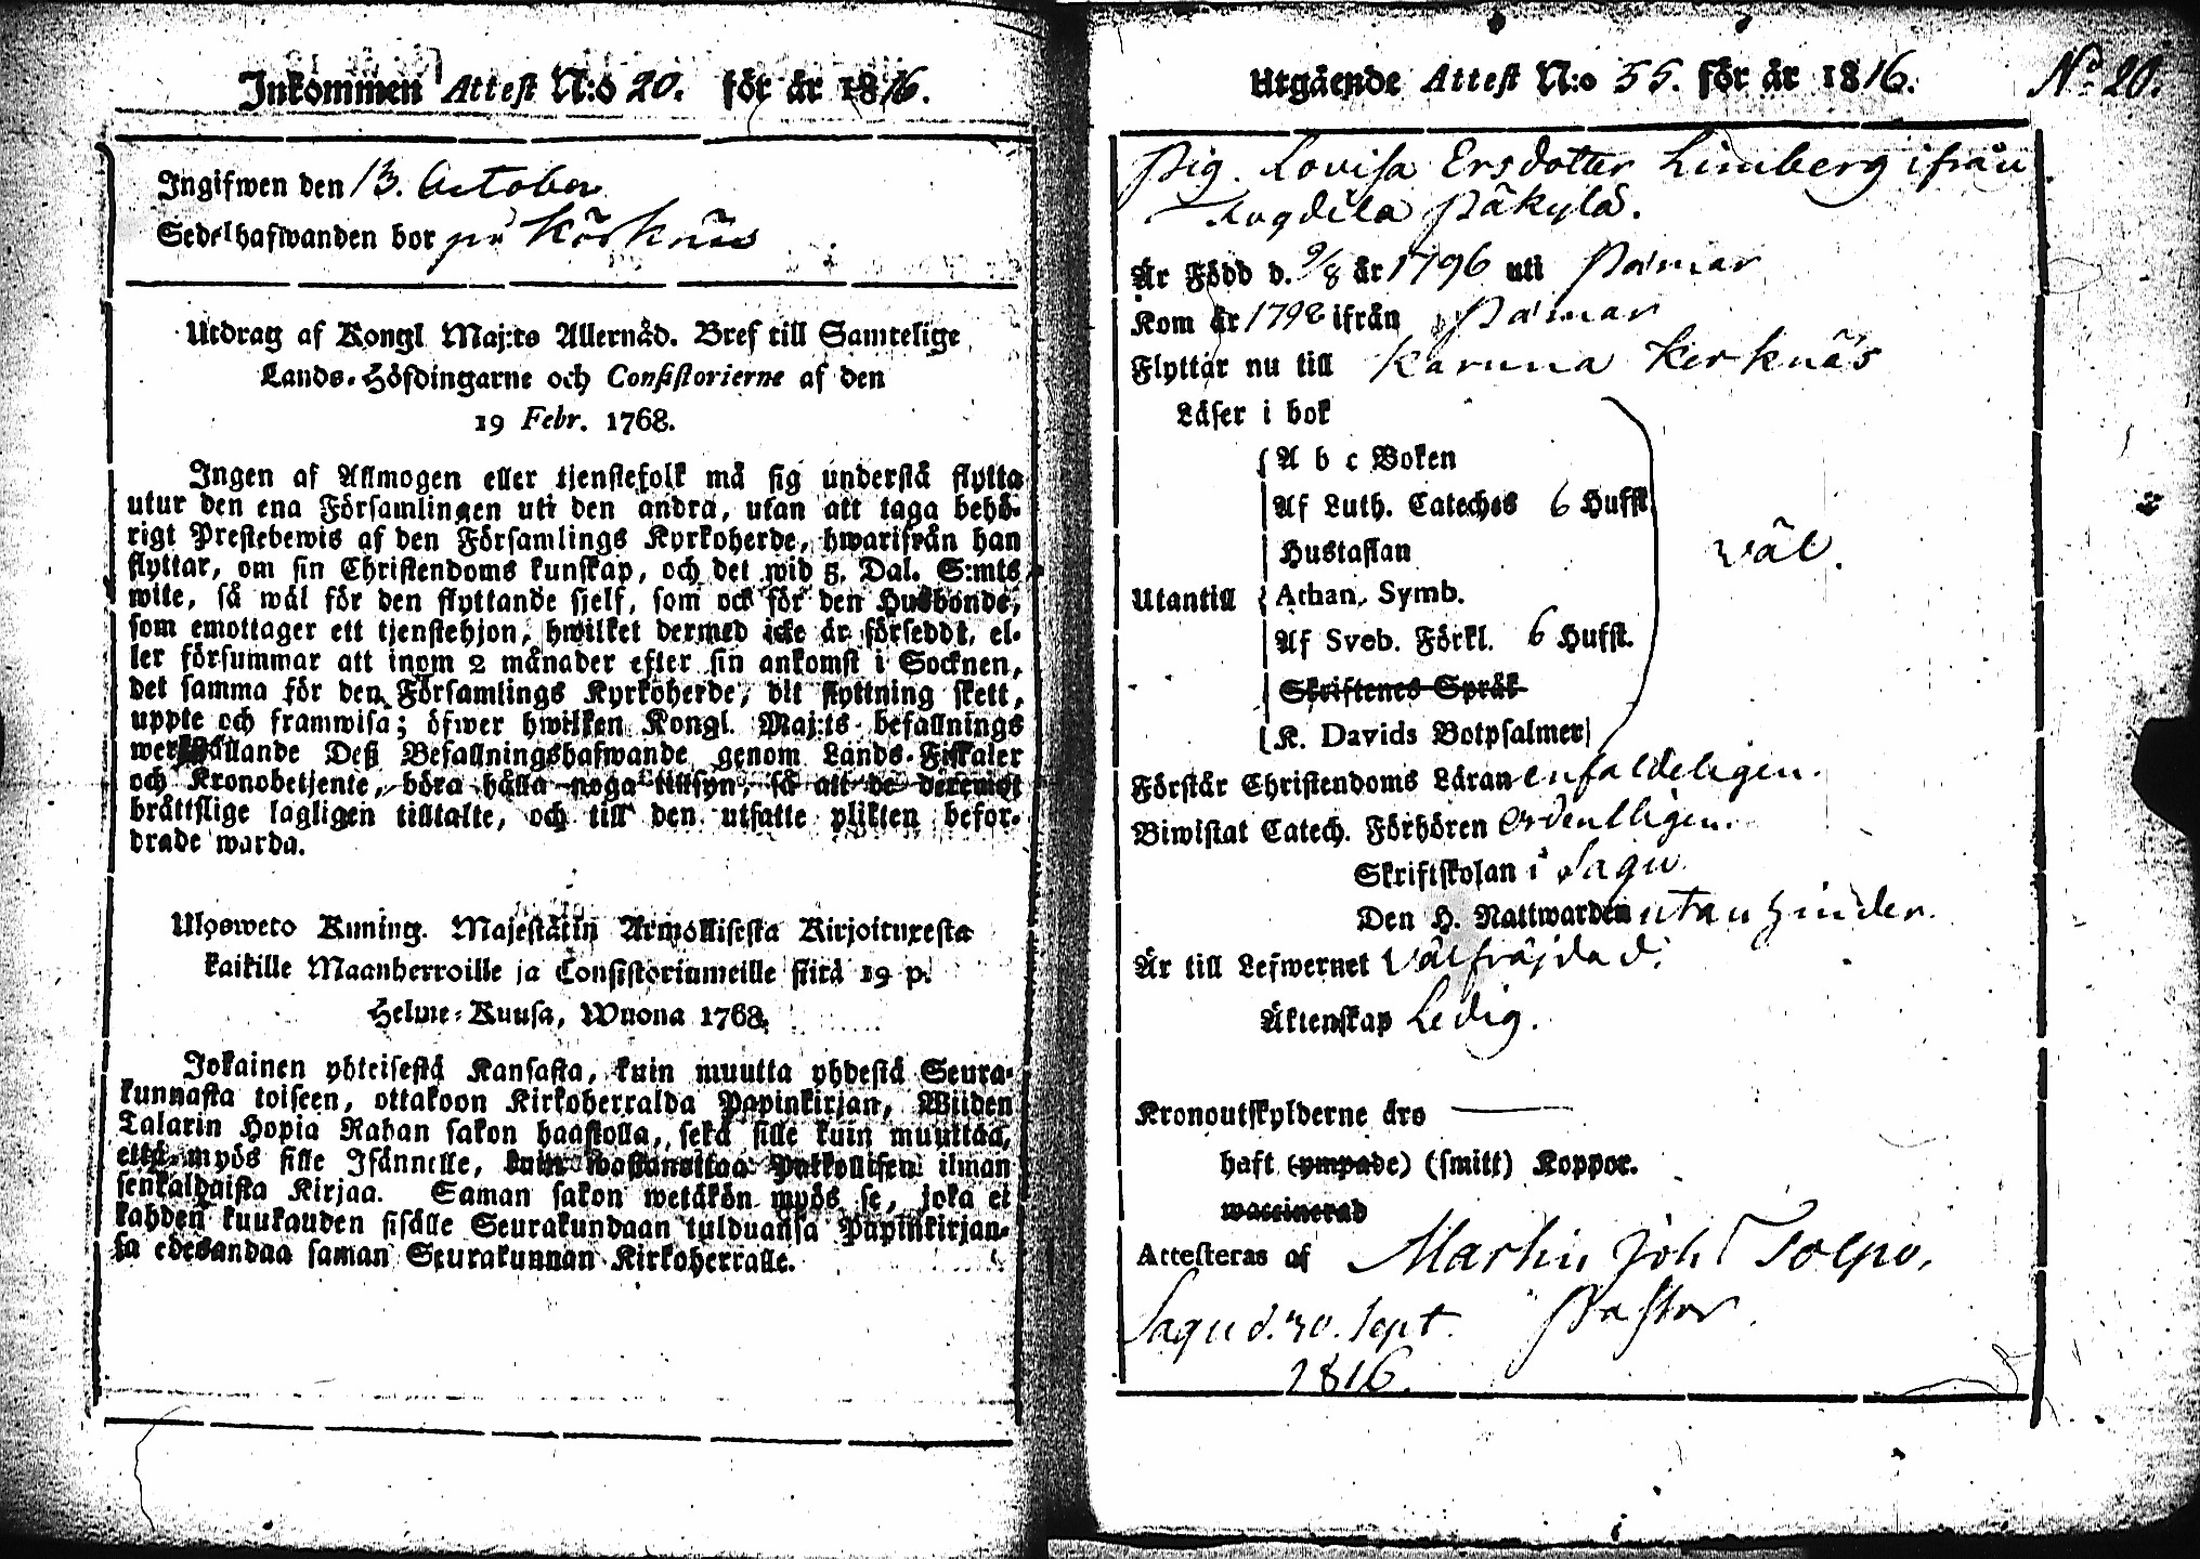 Inkommen Attest N:o 20. för år 1816.
Ingifwen den 13. October
Sedelhafwanden bor på Körknäs
Utdrag af Kongl Maj:ts Allernåd. Bref till Samtelige
Lands-Höfdingarne och Consistorierne af den
19 Febr. 1768.
Ingen af Allmogen eller tjenstefolk må sig understå flytta
utur den ena Församlingen uti den andra, utan att taga behö-
rigt Prestebewis af den Församlings Kyrkoherde, hwarifrån han
flyttar, om sin Christendoms kunskap, och det wid 5. Dal. S:mts
wite, så wäl för den flyttande sjelf, som ock för den Husbonde,
som emottager ett tjenstehjon, hwilket dermed icke är försedt, el-
ler försummar att inom 2 månader efter sin ankomst i Socknen,
det samma för den Församlings Kyrkoherde, dit flyttning skett,
uppte och framwisa; öfwer hwilken Kongl. Maj:ts befallnings
werkställande Deß Befallningshafwande genom Lands-Fiskaler
och Kronobetjente, böra hålla noga tillsyn, så att de deremot
bråttslige lagligen tilltalte, och till den utsatte plikten befor-
drade warda.
Ulosweto Kuning. Majestätin Armollisesta Kirjoituxesta
kaikille Maanherroille ja Consistoriumeille siitä 19 p.
Helme-Kuusa, Wuona 1768.
Jokainen yhteisestä Kansasta, kuin muutta yhdestä Seura-
kunnasta toiseen, ottakoon Kirkoherralda Papinkirjan, Wiiden
Talarin Hopia Rahan sakon haastolla, sekä sille kuin muuttaa,
että myös sille Isännelle, kuin wastanottaa Palkollisen ilman
senkaldaista Kirjaa. Saman sakon wetäkön myös se, joka ei
kahden kuukauden sisälle Seurakundaan tulduansa Papinkirjan-
sa edesandaa saman Seurakunnan Kirkoherralle.
Utgående Attest N:o 55. för år 1816.
No 20.
Pig. Lovisa Ersdotter Limberg ifrån
Påkylä.
Är Född d. 9/8 år 1796 uti Pa'mar
Kom år 1798 ifrån Pa'mar
Flyttar nu till Karuna Kerknäs
Läser i bok
A b c Boken
Af Luth. Cateches 6 Hufst.
Hustaflan
wäl.
Utantill
Athan. Symb.
Af Sveb. Förkl. 6 Hufst.
Skriftenes Språk
K. Davids Botpsalmer
Förstår Christendoms Läran enfaldeligen.
Biwistat Catech. Förhören ordentligen.
Skriftskolan i Sagu
Den H. Nattwarden utan hinder.
Är till Lefwernet Välfräjdad.
Äktenskap Ledig.
Kronoutskylderne äro
haft (ympade) (smitt) Koppor.
waccinerad
Attesteras af Martin Joh Tolpo,
Sagu d. 30. Sept. Pastor
1816.